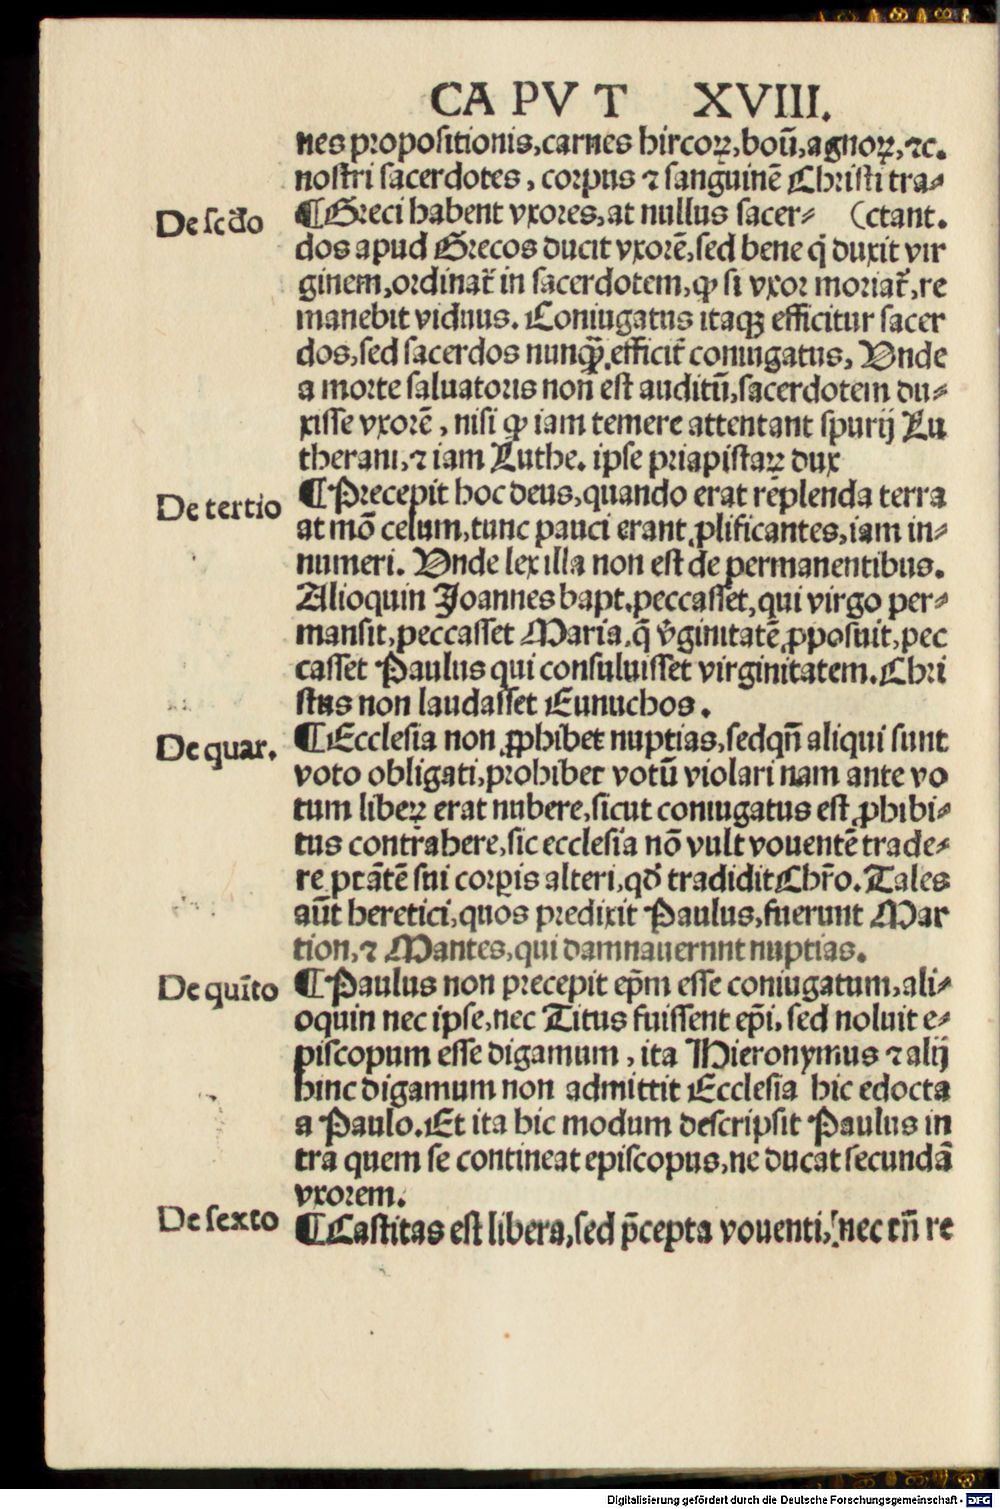 CAPVT XVIII.
nes propositionis, carnes hircoꝝ, boũ, agnoꝝ, ⁊c.
nostri sacerdotes, corpus ⁊ sanguinẽ Christi tra⸗
De scd̃o
¶Greci habent vxores, at nullus sacer⸗ (ctant.
dos apud Grecos ducit vxorẽ, sed bene q̃ duxit vir
ginem, ordinat᷑ in sacerdotem, ꝙ si vxor moriat᷑, re
manebit viduus. Coniugatus itaqꝫ efficitur sacer
dos, sed sacerdos nunꝙ̃ efficit᷑ coniugatus, Vnde
a morte saluatoris non est auditũ, sacerdotem du⸗
xisse vxorẽ, nisi ꝙ iam temere attentant spurij Lu
therani, ⁊ iam Luthe. ipse priapistaꝝ dux
De tertio
¶Precepit hoc deus, quando erat rẽplenda terra
at mõ celum, tunc pauci erant ꝓlificantes, iam in⸗
numeri. Vnde lex illa non est de permanentibus.
Alioquin Joannes bapt. peccasset, qui virgo per⸗
mansit, peccasset Maria, q̃ ṽginitatẽ ꝓposuit, pec
casset Paulus qui consuluisset virginitatem. Chri
stus non laudasset Eunuchos.
De quar.
¶Ecclesia non ꝓhibet nuptias, sed qñ aliqui sunt
voto obligati, prohibet votũ violari nam ante vo
tum libeꝝ erat nubere, sicut coniugatus est ꝓhibi⸗
tus contrahere, sic ecclesia nõ vult vouentẽ trade⸗
re ptãtẽ sui corpis alteri, qd̓ tradidit Chr̃o. Tales
aũt heretici, quos predixit Paulus, fuerunt Mar
tion, ⁊ Mantes, qui damnauernnt nuptias.
De quĩto
¶Paulus non precepit ep̃m esse coniugatum, ali⸗
oquin nec ipse, nec Titus fuissent ep̃i, sed noluit e⸗
piscopum esse digamum, ita Hieronymus ⁊ alij
hinc digamum non admittit Ecclesia hic edocta
a Paulo. Et ita hic modum descripsit Paulus in
tra quem se contineat episcopus, ne ducat secundã
vxorem.
De sexto
¶Castitas est libera, sed p̃cepta vouenti, nec tñ re
Digitalisierung gefördert durch die Deutsche Forschungsgemeinschaft - DFG